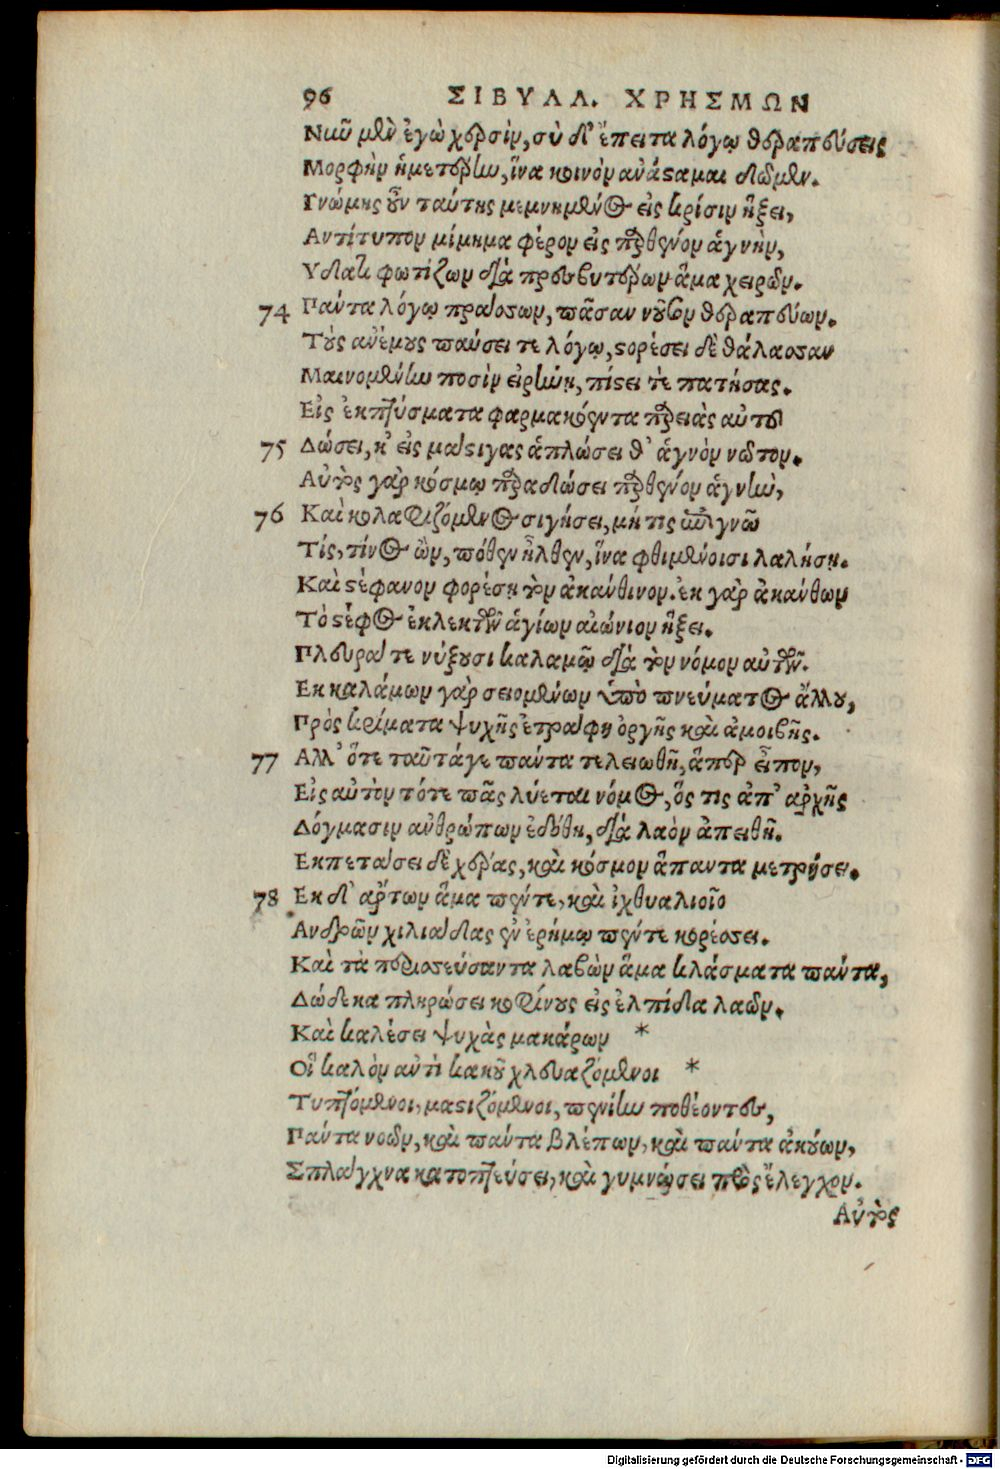 96 ΣΙΒΥΛΛ. ΧΡΗΣΜΩΝ
Νῦν μὲν ἐγὼ χερσὶν, σὺ δ' ἔπειτα λόγῳ θεραπεύσεις
Μορφὴν ἡμετέρην, ἵνα κοινὸν ἀνάστημα δῶμεν.
Γνώμης οὖν ταύτης μεμνημένος εἰς κρίσιν ἥξει,
Αντίτυπον μίμημα φέρον εἰς παρθένον ἁγνὴν,
Υδατι φωτίζων διὰ πρεσβυτέρων ἅμα χειρῶν.
74 Πάντα λόγῳ πράσσων, πᾶσαν νοῦσον θεραπεύων.
Τοὺς ἀνέμους παύσει τε λόγῳ, στορέσει δὲ θάλασσαν
Μαινομένην ποσὶν εἰρήνης, πίστει τὲ πατήσας.
Εἰς ἐκπτύσματα φαρμακόεντα παρειὰς αὐτοῦ
75 Δώσει, κ' εἰς μάστιγας ἁπλώσει θ' ἁγνὸν νῶτον.
Αὐτὸς γὰρ κόσμῳ παραδώσει παρθένον ἁγνὴν,
76 Καὶ κολαφιζόμενος σιγήσει, μή τις ἐπιγνῶ
Τίς, τίνος ὢν, πόθεν ἦλθεν, ἵνα φθιμένοισι λαλήσῃ.
Καὶ στέφανον φορέσῃ τὸν ἀκάνθινον. ἐκ γὰρ ἀκάνθων
Τὸ στέφος ἐκλεκτῶν ἁγίων αἰώνιον ἥξει.
Πλευράς τε νύξουσι καλαμῷ διὰ τὸν νόμον αὐτῶν.
Εκ καλάμων γὰρ σειομένων ὑπὸ πνεύματος ἄλλου,
Πρὸς κρίματα ψυχῆς ἐτράφη ὀργῆς καὶ ἀμοιβῆς.
77 Αλλ' ὅτε ταῦτάγε πάντα τελειωθῇ, ἅπερ εἶπον,
Εἰς αὐτὸν τότε πᾶς λύεται νόμος, ὅς τις ἀπ' ἀρχῆς
Δόγμασιν ἀνθρώπων ἐδόθη, διὰ λαὸν ἀπειθῆ.
Εκπετάσει δὲ χέρας, καὶ κόσμον ἅπαντα μετρήσει.
78 Εκ δ' ἄρτων ἅμα πέντε, καὶ ἰχθυαλιοῖο
Ανδρῶν χιλιάδας ἐν ἐρήμῳ πέντε κορέσσει.
Καὶ τὰ περισσεύσαντα λαβὼν ἅμα κλάσματα πάντα,
Δώδεκα πληρώσει κοφίνους εἰς ἐλπίδα λαῶν.
Καὶ καλέσει ψυχὰς μακάρων *
Οἳ καλὸν ἀντὶ κακοῦ χλευαζόμενοι *
Τυπτόμενοι, μαστιζόμενοι, πενίην ποθέοντες,
Πάντα νοῶν, καὶ πάντα βλέπων, καὶ πάντα ἀκούων,
Σπλάγχνα κατοπτεύσει, καὶ γυμνώσει πρὸς ἔλεγχον.
Αὐτὸς
Digitalisierung gefördert durch die Deutsche Forschungsgemeinschaft - DFG